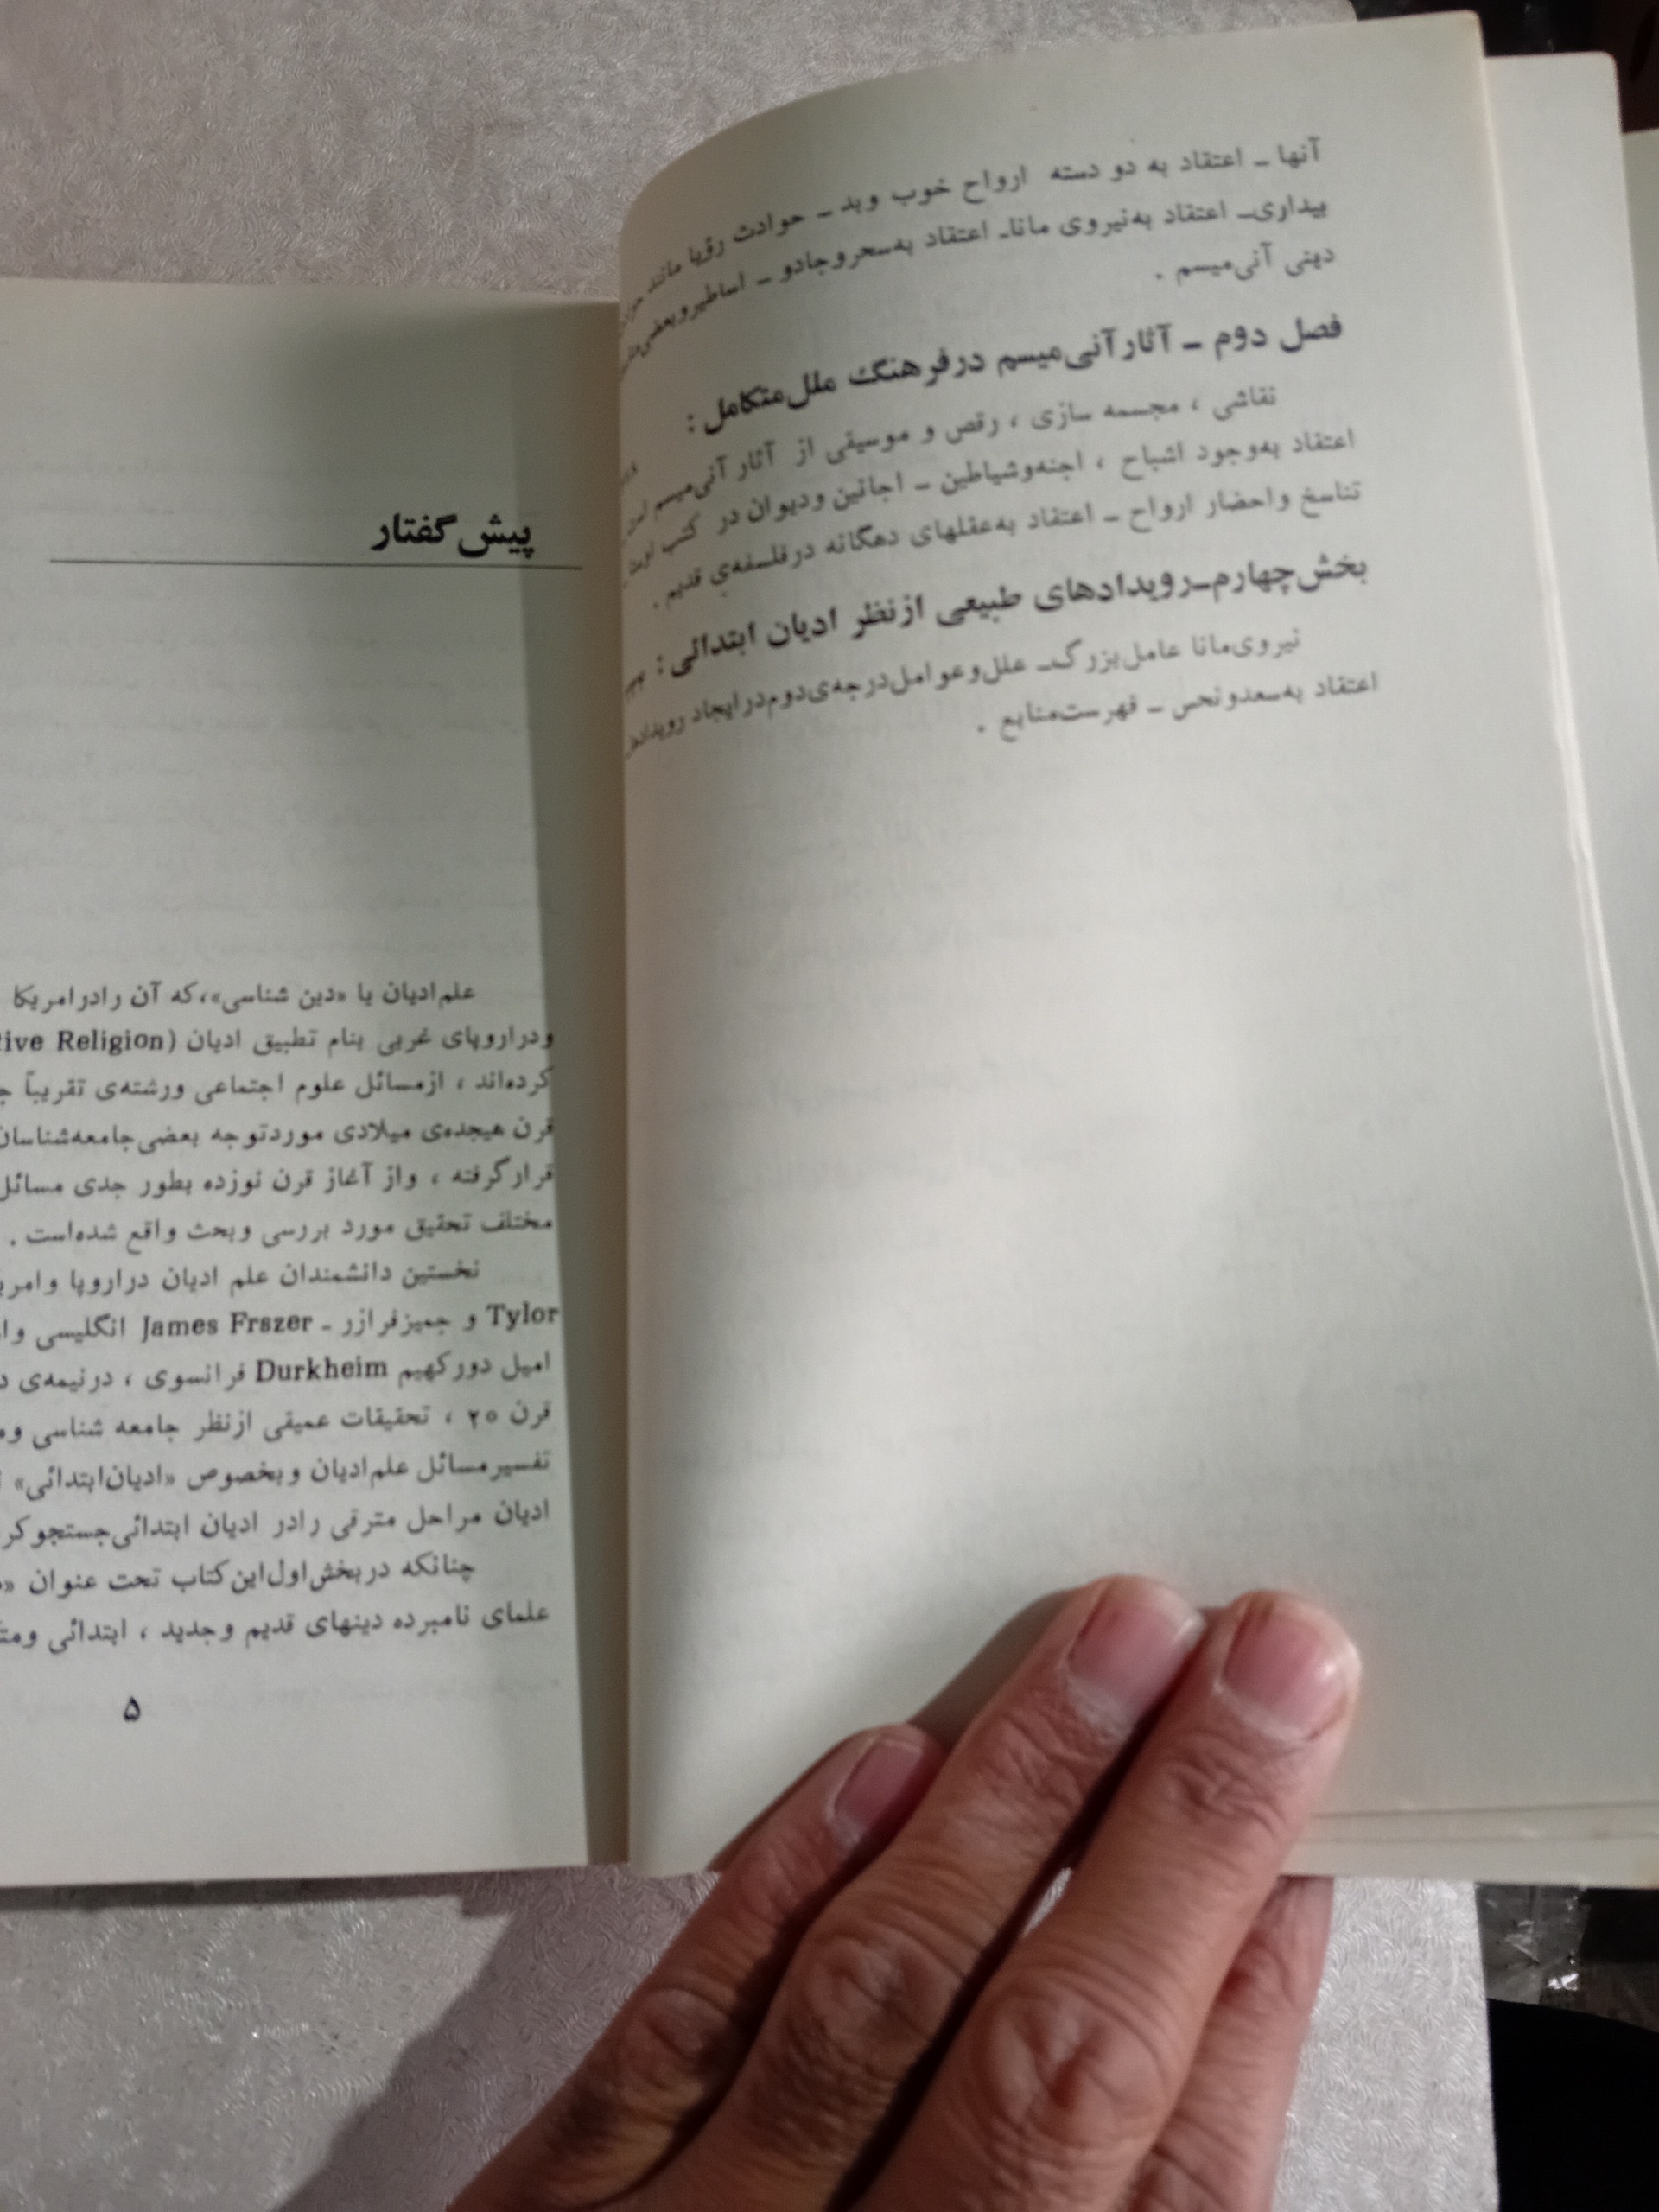 آنها ـ اعتقاد به دو دسته ارواح خوب وبد ـ حوادث رؤیا مانند
بیداری ـ اعتقاد به‌نیروی مانا ـ اعتقاد به‌سحروجادو ـ اساطیروبعضی
دینی آنی‌میسم .
فصل دوم ـ آثارآنی‌میسم درفرهنگ ملل‌متکامل :
نقاشی ، مجسمه سازی ، رقص و موسیقی از آثار آنی‌میسم
اعتقاد به‌وجود اشباح ، اجنه‌وشیاطین ـ اجانین ودیوان در کتب
تناسخ واحضار ارواح ـ اعتقاد به‌عقلهای دهگانه درفلسفه‌ی قدیم .
بخش‌چهارم‌ـ‌رویدادهای طبیعی ازنظر ادیان ابتدائی :
نیروی‌مانا عامل‌بزرگ‌ـ علل‌وعوامل‌درجه‌ی‌دوم‌درایجاد
اعتقاد به‌سعدونحس ـ فهرست‌منابع .
پیش‌گفتار
علم‌ادیان یا «دین شناسی»،که آن رادرامریکا
ودراروپای غربی بنام تطبیق ادیان (tive Religion
کرده‌اند ، ازمسائل علوم اجتماعی ورشته‌ی تقریباً
قرن هیجده‌ی میلادی موردتوجه بعضی‌جامعه‌شناسان
قرارگرفته ، واز آغاز قرن نوزده بطور جدی مسائل
مختلف تحقیق مورد بررسی وبحث واقع شده‌است .
نخستین دانشمندان علم ادیان دراروپا
Tylor و جمیزفرازر ـ James Frszer انگلیسی
امیل دورکهیم Durkheim فرانسوی ، درنیمه‌ی
قرن ۲۰ ، تحقیقات عمیقی ازنظر جامعه شناسی
تفسیرمسائل علم‌ادیان وبخصوص «ادیان‌ابتدائی»
ادیان مراحل مترقی رادر ادیان ابتدائی‌جستجوکر
چنانکه دربخش‌اول‌این‌کتاب تحت عنوان
علمای نامبرده دینهای قدیم وجدید ، ابتدائی
۵